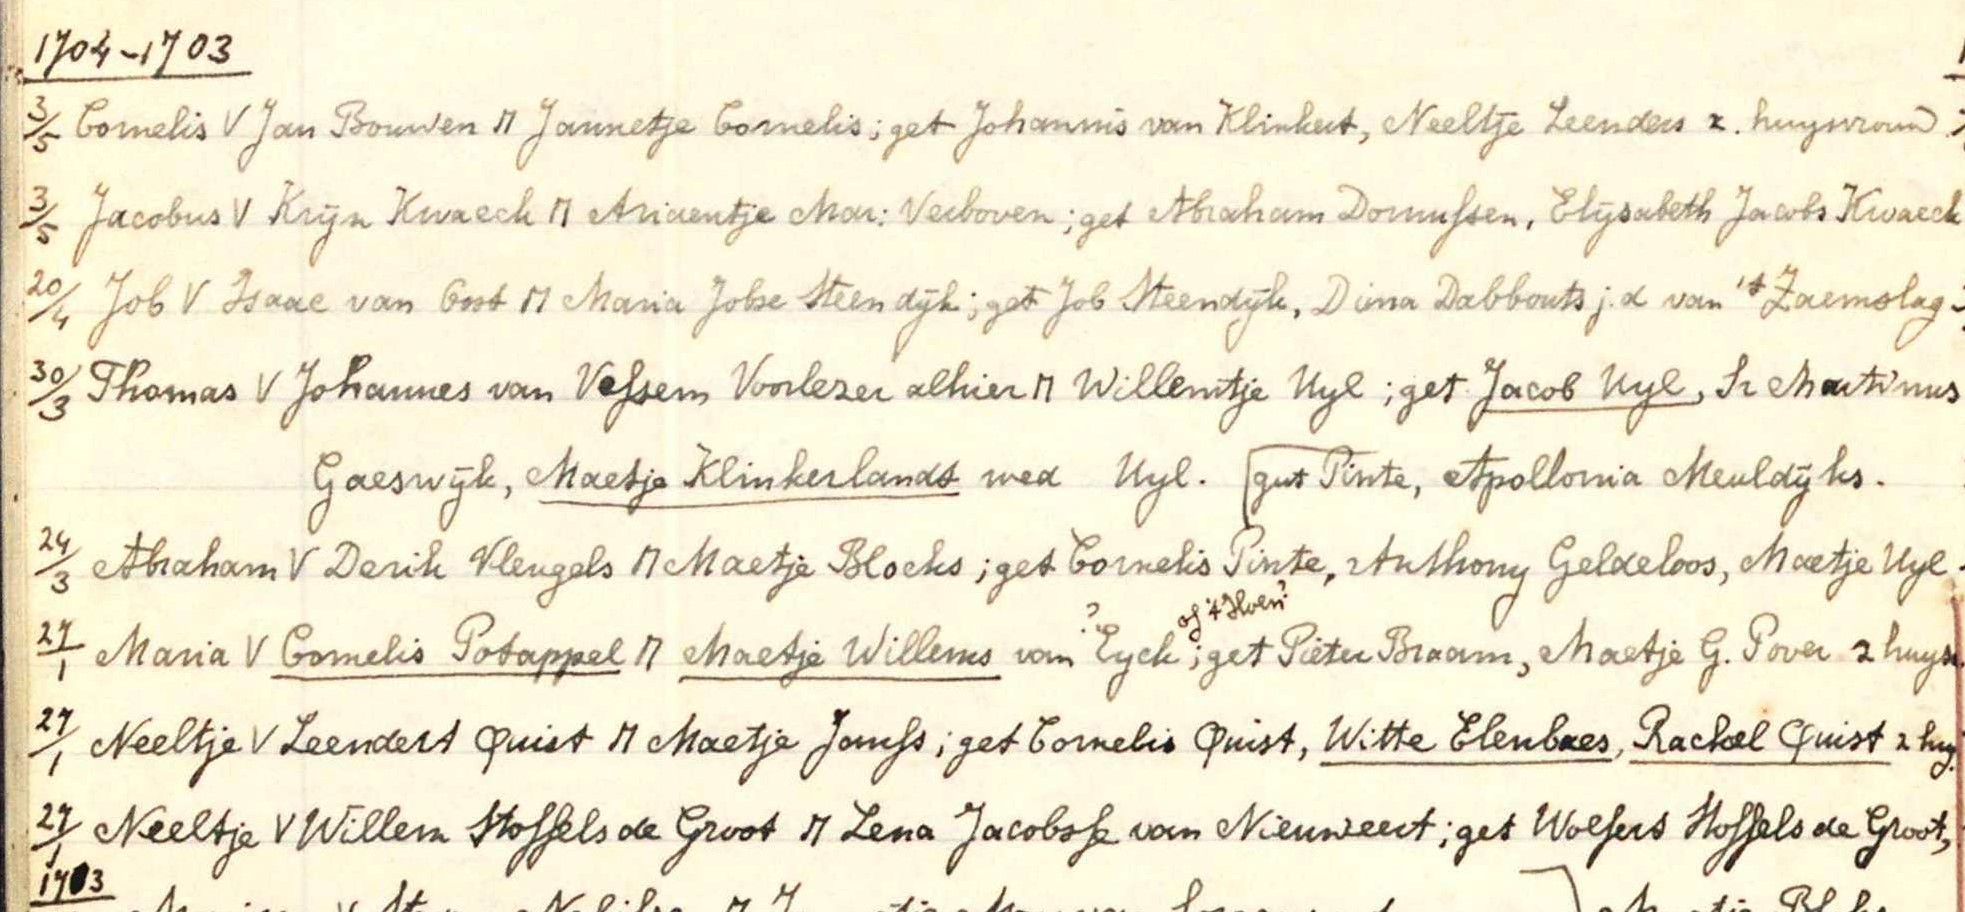 1704-1703
3/5 Cornelis V Jan Bouwen M Jannetje Cornelis; get Johannis van Klinkert, Neeltje Leenders z. huysvrouw
3/5 Jacobus V Krijn Kwaeck M Ariaentje Mar: Verboven; get Abraham Dornussen, Elysabeth Jacobs Kwaeck
20/4 Job V Isaac van Oost M Maria Jobse Steendijk; get Job Steendijk, Dina Dabbouts j.d van 't Zaemslag
30/3 Thomas V Johannes van Vessem Voorlezer alhier M Willemtje Uyl; get Jacob Uyl, Sr Martinus
Gaeswijk, Maetje Klinkerlands wed Uyl. get Pinte, Apollonia Meuldijks.
24/3 Abraham V Derik Vleugels M Maetje Blocks; get Cornelis Pinte, Anthony Geldeloos, Maetje Uyl.
of 't
27/1 Maria V Cornelis Potappel M Maetje Willems van ? Eyck; get Pieter Braam, Maetje G. Pover z huysv
27/1 Neeltje V Leendert Quist M Maetje Janss; get Cornelis Quist, Witte Elenbaes, Rachel Quist z huy.
27/1 Neeltje V Willem Stoffels de Groot M Lena Jacobsse van Nieuweert; get Wolfert Stoffels de Groot,
1703